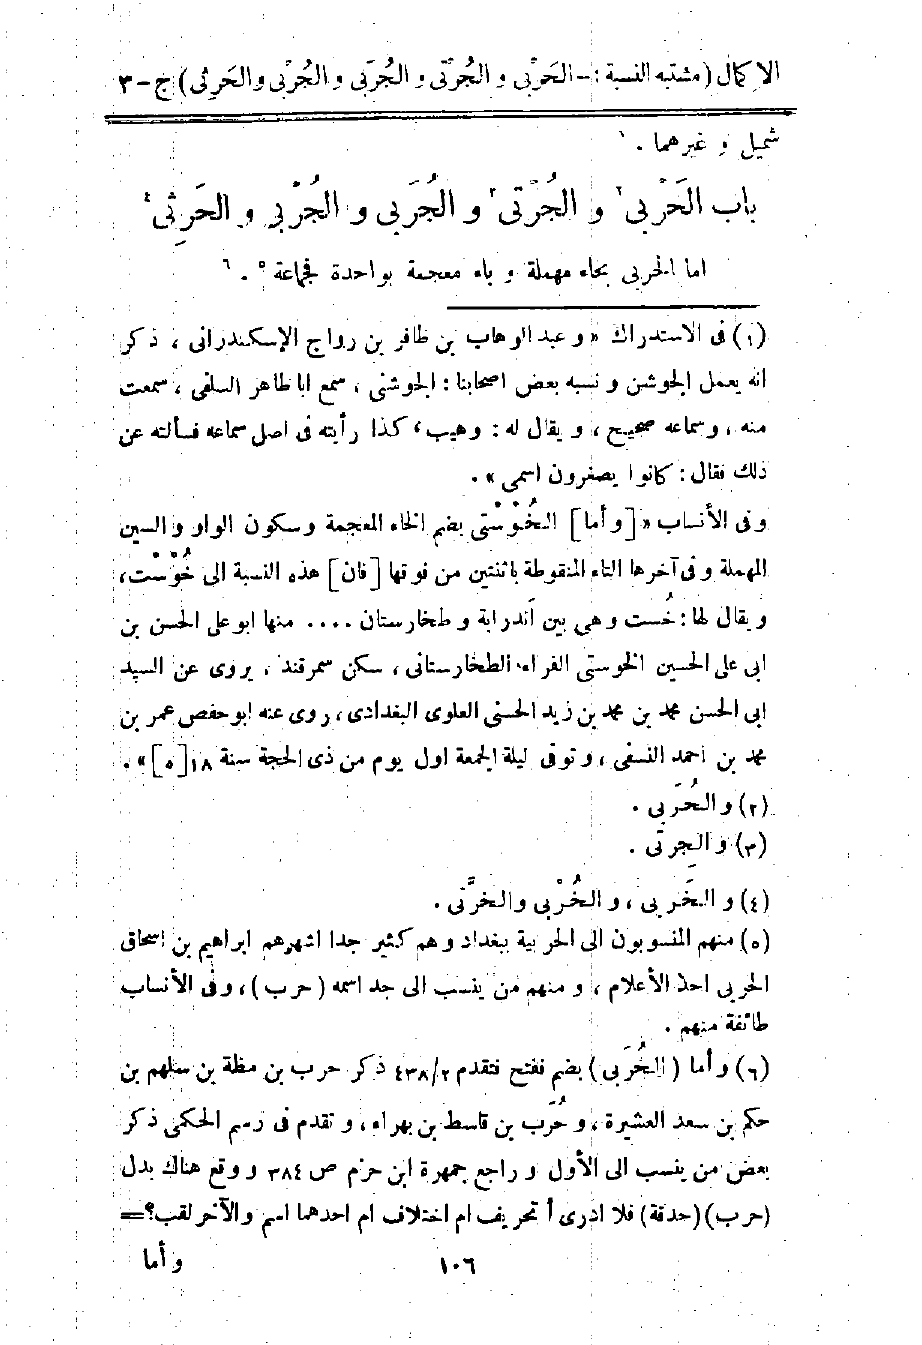 الإكمال (مشتبه النسبة :- الحَرْبى و الجُرْتى و الجُرَبى و الجُرْبى والحَرِثى) ج - ٣
شميل و غيرهما . ١
باب الحَرْبى ٢ و الجُرْتى ٣ و الجُرَبى و الجُرْبى و الحَرِثى ٤
اما الحربى بحاء مهملة و باء معجمة بواحدة فجماعة ٥ . ٦
(١) فى الاستدراك « و عبد الوهاب بن ظافر بن رواج الإسكندرانى ، ذكر
انه يعمل الجوشن و نسبه بعض اصحابنا : الجوشنى ، سمع ابا طاهر السلفى ، سمعت
منه ، وسماعه صحيح ، و يقال له : وهيب ، كذا رأيته فى اصل سماعه فسألته عن
ذلك فقال : كانوا يصغرون اسمى » .
وفى الأنساب « [ و أما ] الخُوْسْتى بضم الخاء المعجمة وسكون الواو والسين
المهملة و فى آخرها التاء المنقوطة باثنتين من فوقها [ فان ] هذه النسبة الى خُوْسْت ،
و يقال لها : خُست وهى بين أندرابة و طخارستان .... منها ابو على الحسن بن
ابى على الحسين الخوستى الفراء الطخارستانى ، سكن سمرقند ، يروى عن السيد
ابى الحسن محمد بن محمد بن زيد الحسنى العلوى البغدادى ، روى عنه ابو حفص عمر بن
محمد بن احمد النسفى ، و توفى ليلة الجمعة اول يوم من ذى الحجة سنة ١٨[٥] » .
(٢) و الحُرَبى .
(٣) و الجِرتى .
(٤) و الخَربى ، و الخُرْبى والخرَّتى .
(٥) منهم المنسوبون الى الحربية ببغداد وهم كثير جدا اشهرهم ابراهيم بن اسحاق
الحربى احد الأعلام ، و منهم من ينسب الى جد اسمه ( حرب ) ، وفى الأنساب
طائفة منهم .
(٦) و أما ( الحُرَبى ) بضم ففتح فتقدم ٤٣٨/٢ ذكر حرب بن مظة بن سلهم بن
حكم بن سعد العشيرة ، و حُرَب بن قاسط بن بهراء ، و تقدم فى رسم الحكمى ذكر
بعض من ينسب الى الأول و راجع جمهرة ابن حزم ص ٣٨٤ و وقع هناك بدل
(حرب) (حدقة) فلا ادرى أ تحريف ام اختلاف ام احدهما اسم والآخر لقب ؟=
١٠٦
و أما